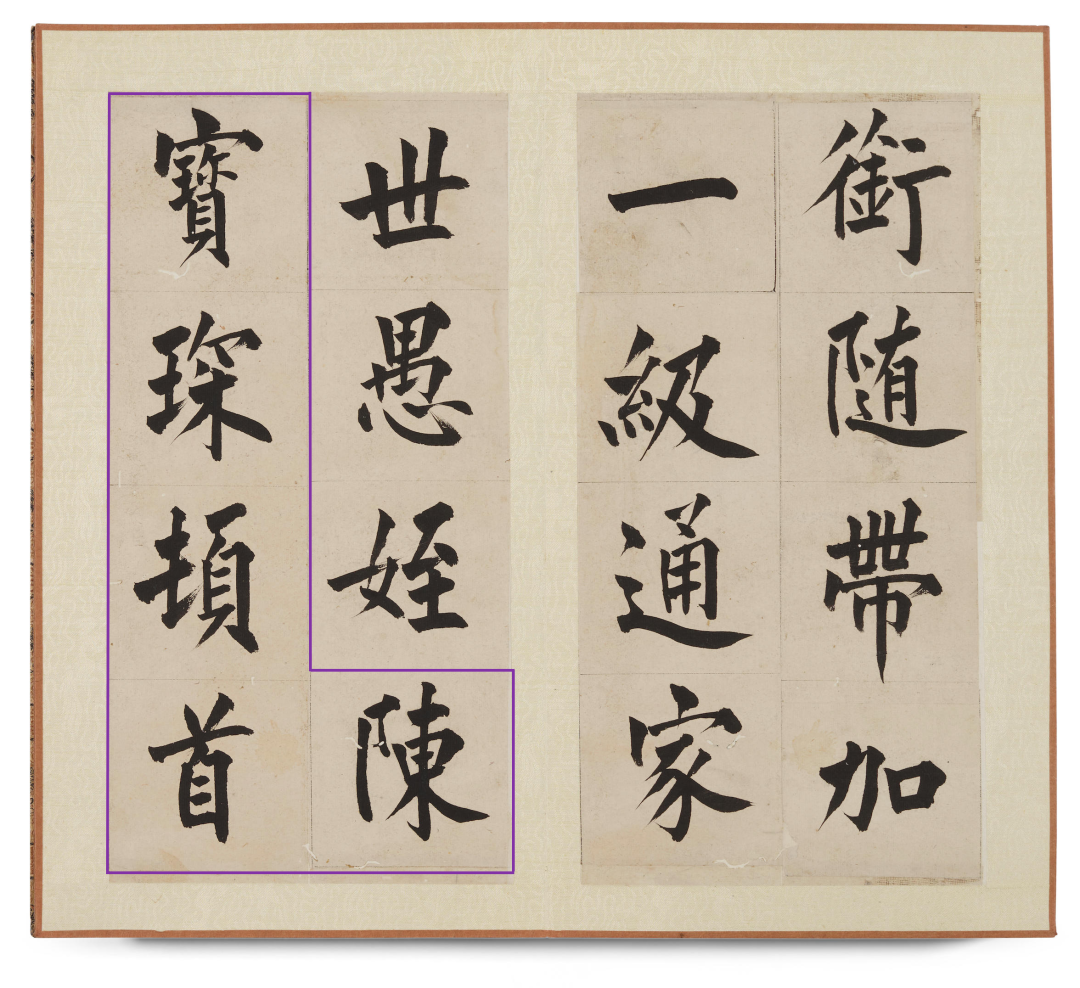 銜随帶加
一級通家
世愚姪陳
寶琛頓首